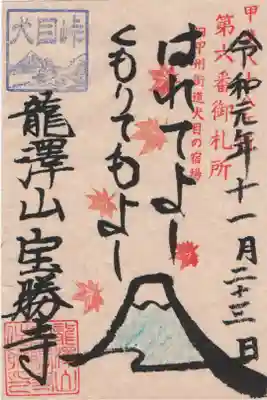 甲
令和元年十一月二十三日
第六番御札所
旧甲州街道犬目の宿場
はれてよし
くもりてもよし
犬目峠
龍澤山宝勝寺